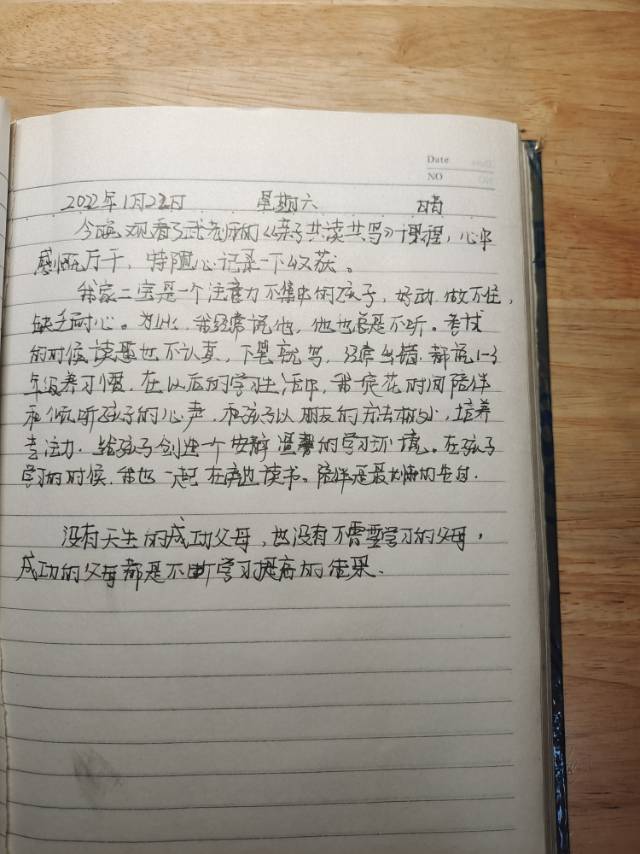 Date
NO
2022年1月22日 星期六 晴
今晚观看了武老师的《亲子共读共写》课程，心中
感慨万千，特随心记录一下收获。
我家二宝是一个注意力不集中的孩子，好动，做不住，
缺乏耐心。为此，我经常说他，他也总是不听。考试
的时候读题也不认真，下笔就写，经常出错，都说1-3
年级养习惯，在以后的学习生活中，我一定花时间陪伴
和倾听孩子的心声，和孩子以朋友的方法相处，培养
专注力，给孩子创造一个安静温馨的学习环境。在孩子
学习的时候，我也一起在旁边读书。陪伴是最长情的告白.
没有天生的成功父母，也没有不需要学习的父母，
成功的父母都是不断学习提高的结果.